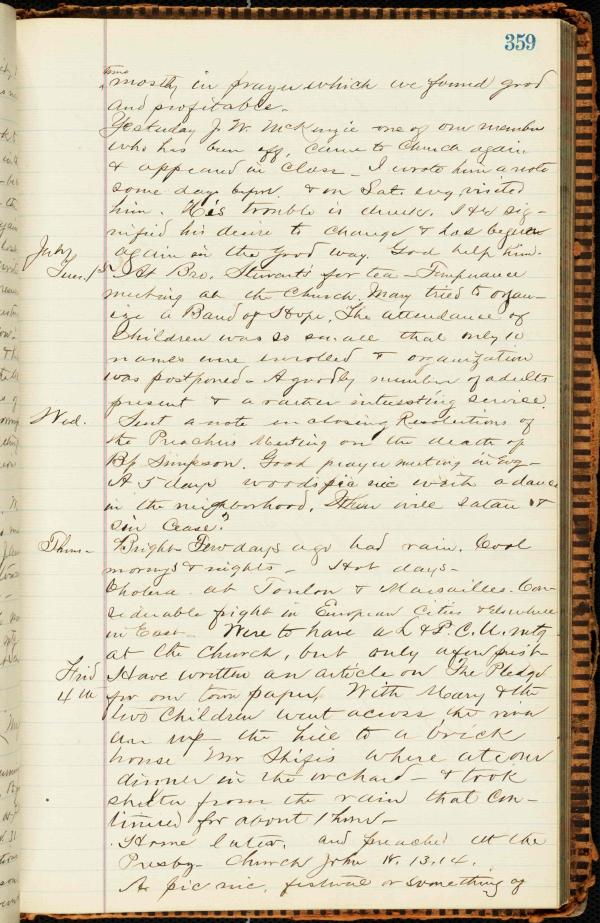 359
time
mostly in prayer which we found good
and profitable.
Yesterday J. W. McKenzie one of our members
who has been off, came to Church again
& appeared in Class – I wrote him a note
some days before & on Sat. evg visited
him. His trouble is drink. He sig-
nified his desire to change & has begun
again in the good way. God help him.
July
Tues. 1st At Bro. Stewarts for tea – Temperance
meeting at the Church. Mary tried to organ-
ize a Band of Hope. The attendance of
Children was so small that only 10
names were enrolled & organization
was postponed – A goodly number of adults
present & a rather interesting service.
Wed. Sent a note inclosing Resolutions of
the Preachers Meeting on the death of
Bp Simpson. Good prayer meeting in Evg –
A 5 days woods pic nic with a dance
in the neighborhood. When will Satan &
sin cease?
Thurs – Bright – Few days ago had rain. Cool
morngs & nights – Hot days –
Cholera at Toulon & Marsailles. Con-
siderable fright in European Cities & elsewhere
in East – Were to have a L & P. C. U. mtg
at the Church, but only a few pres't –
Frid Have written an article on The Pledge
4th for our town paper. With Mary & the
two Children went across the river
up the hill to a brick
house Mr where ate our
dinner in the orchard – & took
shelter from the rain that con-
tinued for about 1 hour –
Home later, and preached at the
Presby – Church John 18. 13.14.
A pic nic, festival or something of